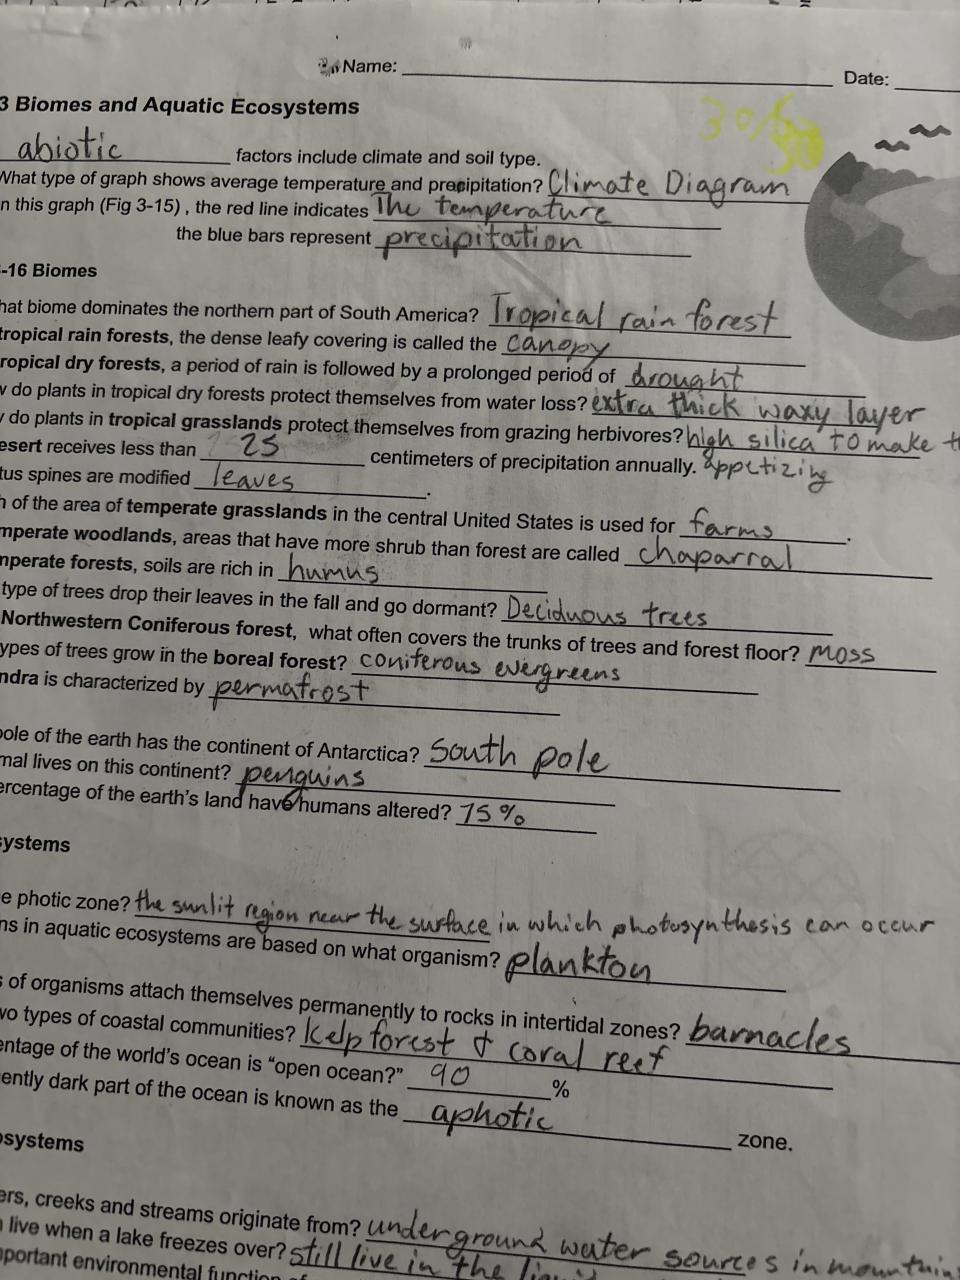 Name: Date:
3 Biomes and Aquatic Ecosystems
30/30
abiotic factors include climate and soil type.
What type of graph shows average temperature and precipitation? Climate Diagram
n this graph (Fig 3-15) , the red line indicates The temperature
the blue bars represent precipitation
-16 Biomes
hat biome dominates the northern part of South America? Tropical rain forest
tropical rain forests, the dense leafy covering is called the canopy
ropical dry forests, a period of rain is followed by a prolonged period of drought
w do plants in tropical dry forests protect themselves from water loss? extra thick waxy layer
do plants in tropical grasslands protect themselves from grazing herbivores? high silica to make
esert receives less than 25 centimeters of precipitation annually. appetizing
tus spines are modified leaves.
h of the area of temperate grasslands in the central United States is used for farms.
mperate woodlands, areas that have more shrub than forest are called chaparral
mperate forests, soils are rich in humus
type of trees drop their leaves in the fall and go dormant? Deciduous trees
Northwestern Coniferous forest, what often covers the trunks of trees and forest floor? moss
ypes of trees grow in the boreal forest? coniferous evergreens
ndra is characterized by permafrost
pole of the earth has the continent of Antarctica? South pole
mal lives on this continent? penguins
ercentage of the earth's land have humans altered? 75%
systems
e photic zone? the sunlit region near the surface in which photosynthesis can occur
ns in aquatic ecosystems are based on what organism? plankton
s of organisms attach themselves permanently to rocks in intertidal zones? barnacles
wo types of coastal communities? Kelp forest & coral reef
entage of the world's ocean is "open ocean?" 90 %
ently dark part of the ocean is known as the aphotic zone.
osystems
ers, creeks and streams originate from? underground water sources in mountain
live when a lake freezes over? still live in the
portant environmental function of